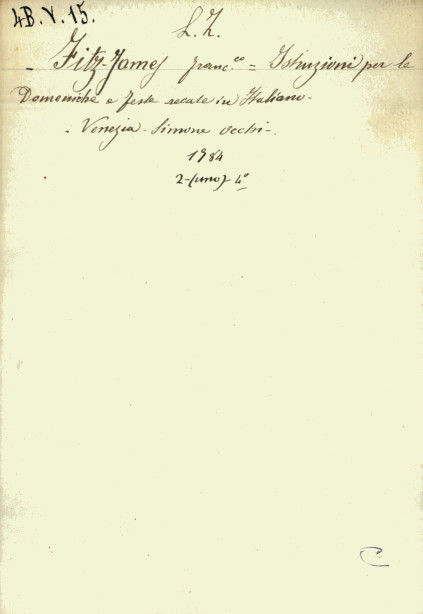 4B. V. 15.
L. Z.
- Fitz-James Franc.co = Istruzioni per le
Domeniche e feste recate in Italiano -
- Venezia - Simone Occhi -
1784
2 - (uno) - 4º
C